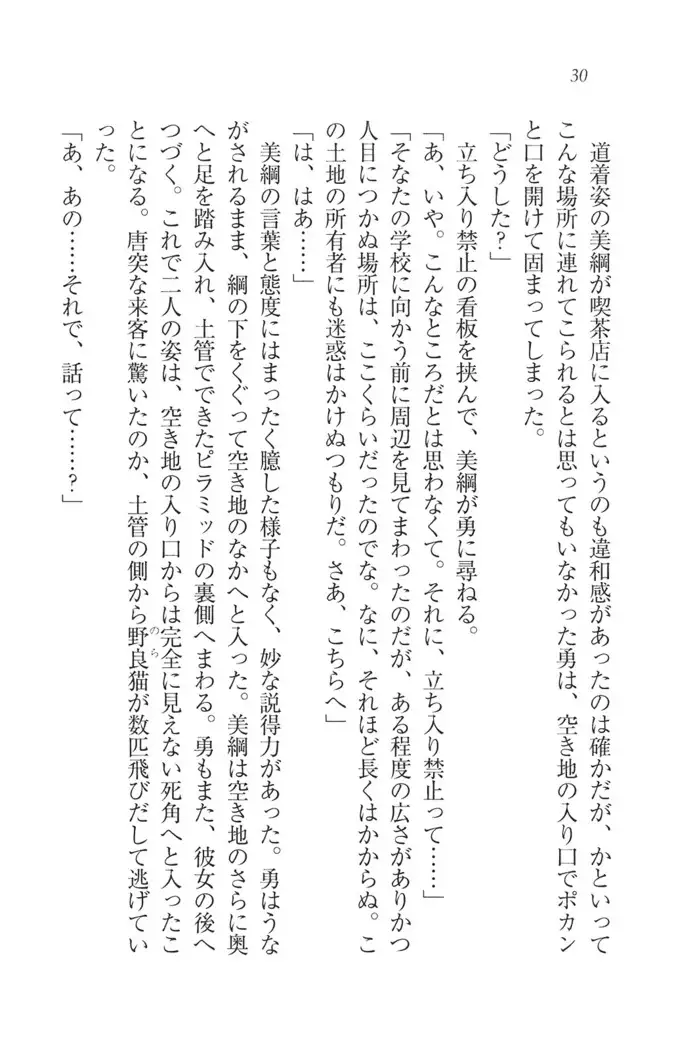 30
道着姿の美綱が喫茶店に入るというのも違和感があったのは確かだが、かといって
こんな場所に連れてこられるとは思ってもいなかった勇は、空き地の入り口でポカン
と口を開けて固まってしまった。
「どうした？」
立ち入り禁止の看板を挟んで、美綱が勇に尋ねる。
「あ、いや。こんなところだとは思わなくて。それに、立ち入り禁止って……」
「そなたの学校に向かう前に周辺を見てまわったのだが、ある程度の広さがありかつ
人目につかぬ場所は、ここくらいだったのでな。なに、それほど長くはかからぬ。こ
の土地の所有者にも迷惑はかけぬつもりだ。さあ、こちらへ」
「は、はあ……」
美綱の言葉と態度にはまったく臆した様子もなく、妙な説得力があった。勇はうな
がされるまま、綱の下をくぐって空き地のなかへと入った。美綱は空き地のさらに奥
へと足を踏み入れ、土管でできたピラミッドの裏側へまわる。勇もまた、彼女の後へ
つづく。これで二人の姿は、空き地の入り口からは完全に見えない死角へと入ったこ
とになる。唐突な来客に驚いたのか、土管の側から野良猫が数匹飛びだして逃げてい
のら
った。
「あ、あの……それで、話って……？」